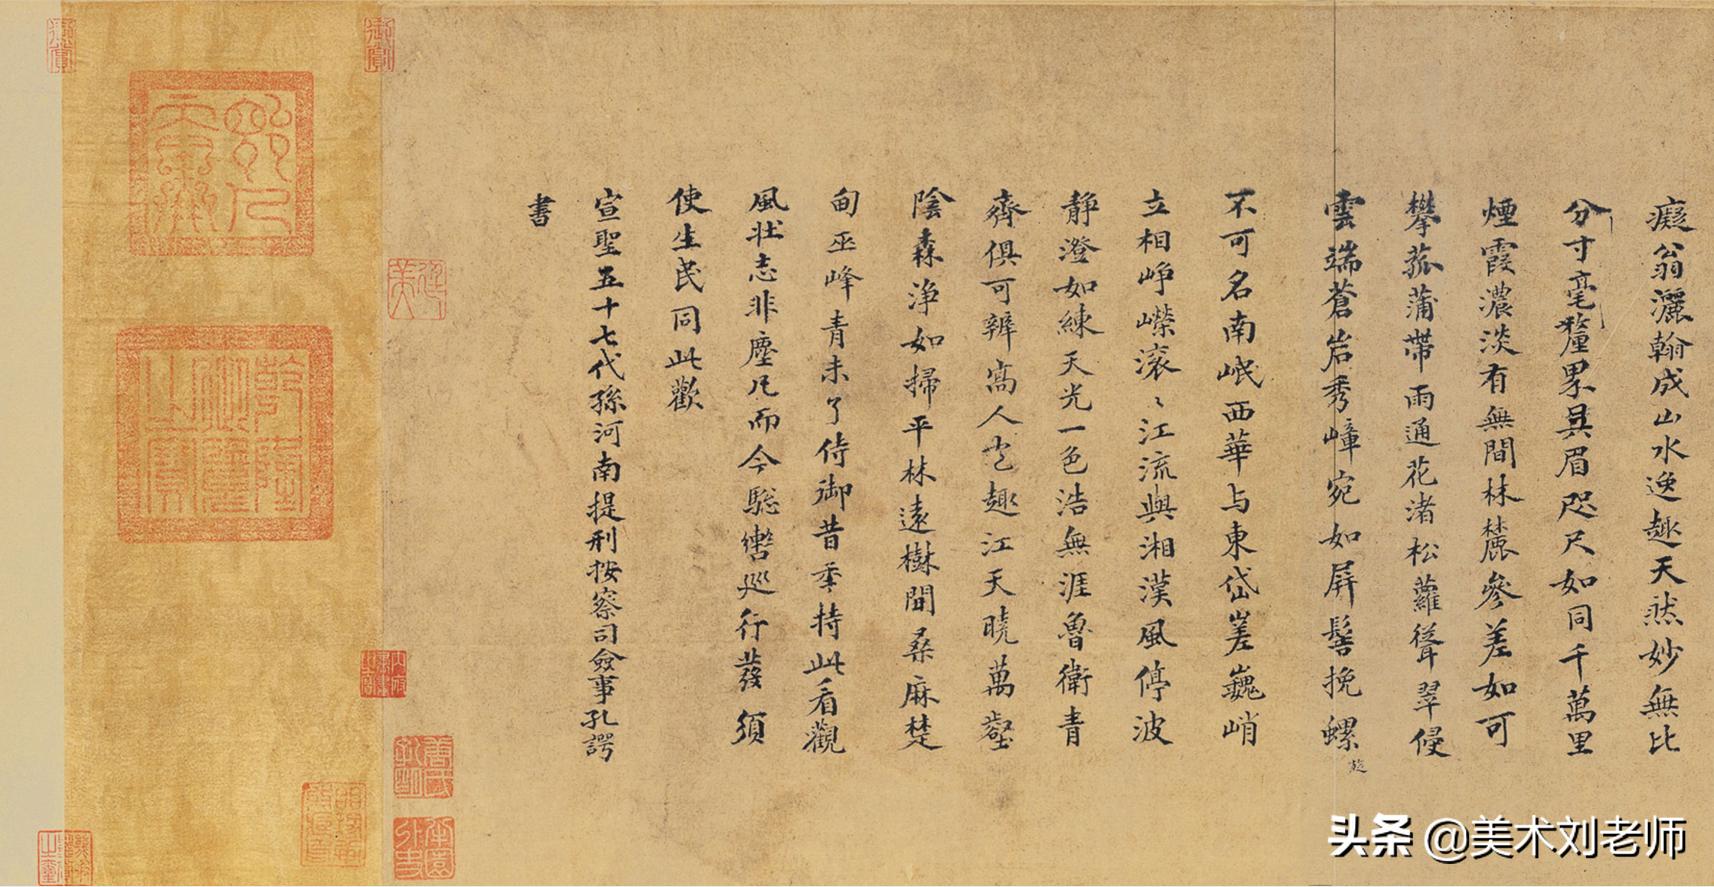 癡翁灑翰成山水逸趣天然妙無比
分寸毫釐界具眉咫尺如同千萬里
煙霞濃淡有無間林麓參差如可
攀菰蒲帶雨通花渚松蘿聳翠侵
雲端蒼岩秀嶂宛如屏髻挽螺
不可名南岷西華与東岱嵳巍峭
立相崢嶸滾〻江流與湘漢風停波
靜澄如練天光一色浩無涯魯衛青
齊俱可辨寫人也趣江天曉萬壑
陰森淨如掃平林遠樹間桑麻楚
甸巫峰青未了侍御昔季持此看觀
風壮志非塵凡而今驄轡巡行發須
使生民同此歡
宣聖五十七代孫河南提刑按察司僉事孔諤
書
乾隆御覽之寶
頭条 @美术刘老师